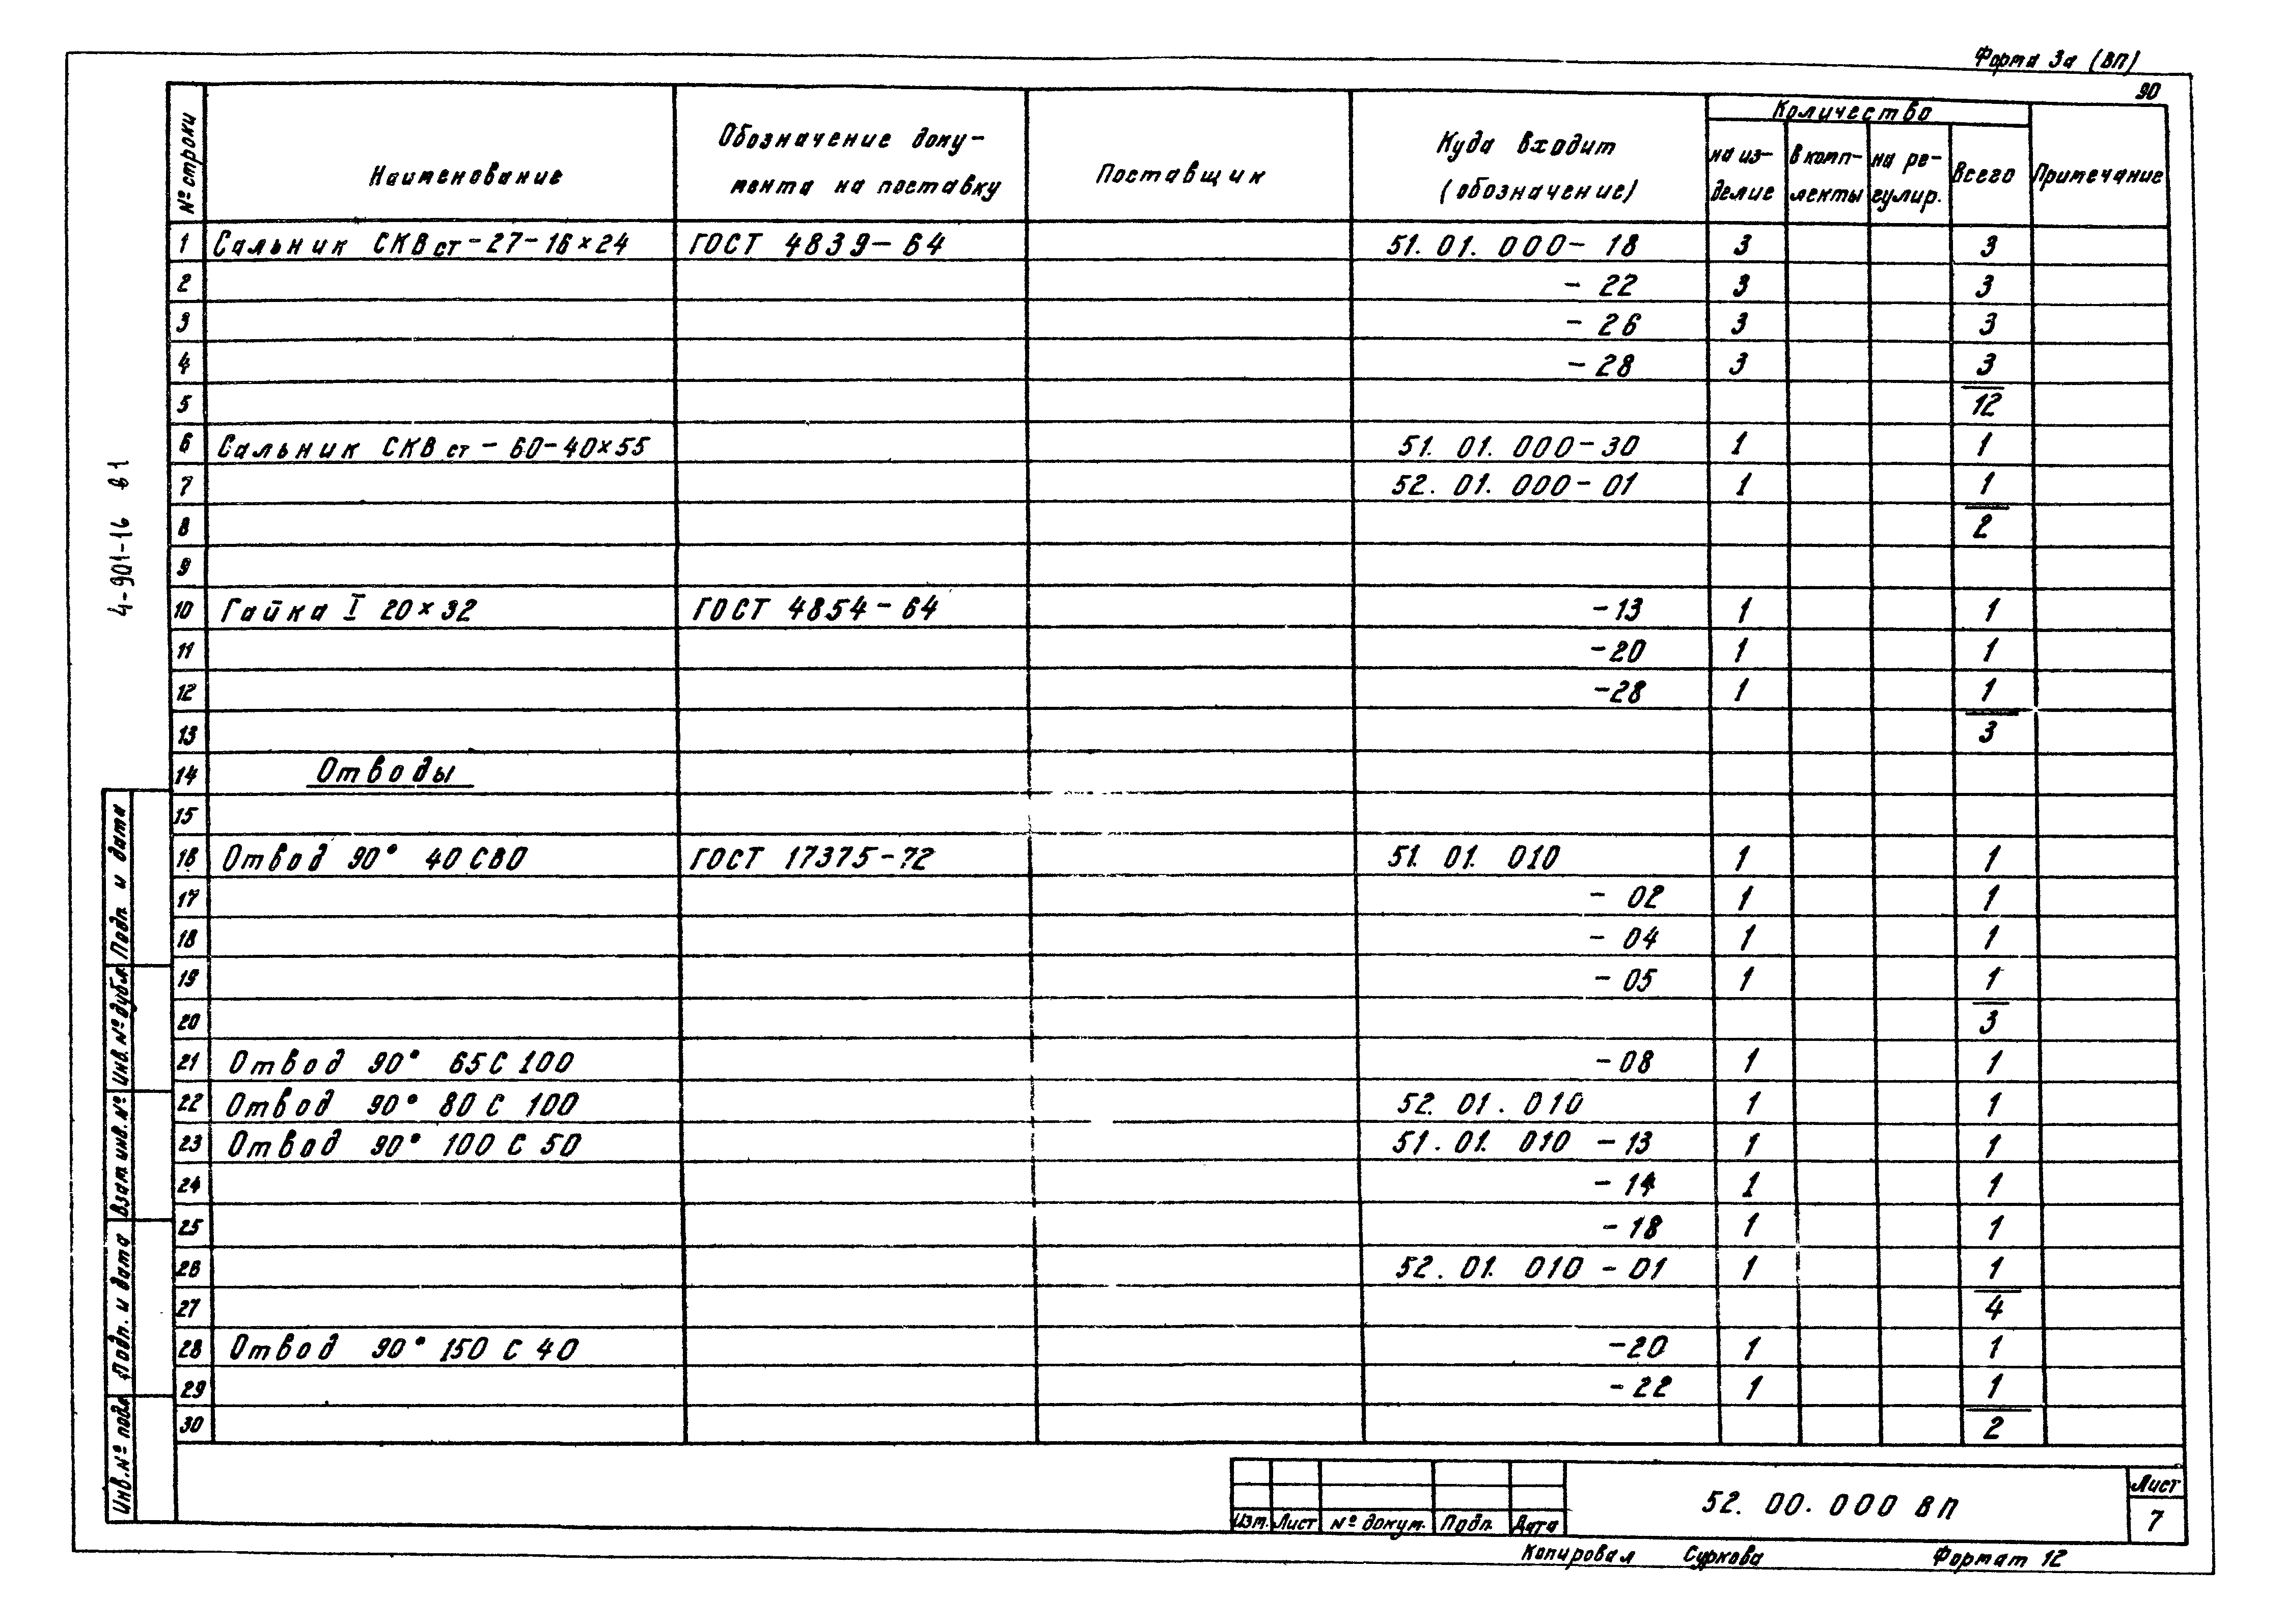 Форма 3а (ВП)
90
№ строки
Наименование
Обозначение доку-
мента на поставку
Поставщик
Куда входит
(обозначение)
Количество
на из-
делие
в комп-
лекты
на ре-
гулир.
Всего
Примечание
1 Сальник СКВ ст-27-16×24 ГОСТ 4839-64 51. 01. 000-18 3 3
2 - 22 3 3
3 - 26 3 3
4 - 28 3 3
5 12
6 Сальник СКВ ст-60-40×55 51. 01. 000-30 1 1
7 52. 01. 000-01 1 1
8 2
9
10 Гайка I 20×32 ГОСТ 4854-64 -13 1 1
11 -20 1 1
12 -28 1 1
13 3
14 Отводы
15
16 Отвод 90° 40 С80 ГОСТ 17375-72 51. 01. 010 1 1
17 - 02 1 1
18 - 04 1 1
19 - 05 1 1
20 3
21 Отвод 90° 65 С 100 -08 1 1
22 Отвод 90° 80 С 100 52. 01. 010 1 1
23 Отвод 90° 100 С 50 51. 01. 010 -13 1 1
24 - 14 1 1
25 - 18 1 1
26 52. 01. 010 - 01 1 1
27 4
28 Отвод 90° 150 С 40 -20 1 1
29 -22 1 1
30 2
4-901-16 в 1
Подп и дата
Инв. № дубл.
Взам. инв. №
Подп. и дата
Инв. № подл
Изм. Лист № докум. Подп. Дата
52. 00. 000 ВП
Лист
7
Копировал Суркова Формат 12